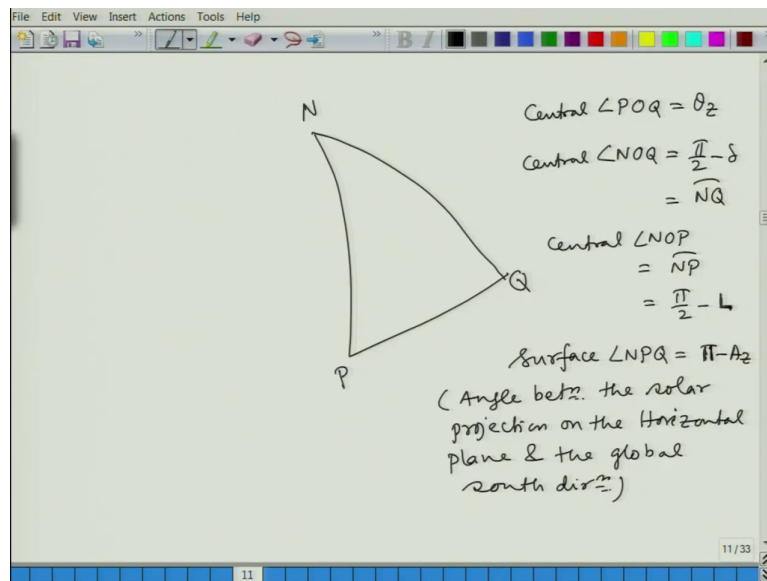 File Edit View Insert Actions Tools Help
» » B I
N
Q
P
Central ∠POQ = θz
Central ∠NOQ = π/2 - δ
= NQ
Central ∠NOP
= NP
= π/2 - L
Surface ∠NPQ = π-Az
(Angle betn. the solar
projection on the Horizontal
plane & the global
south dirn)
11/33
11